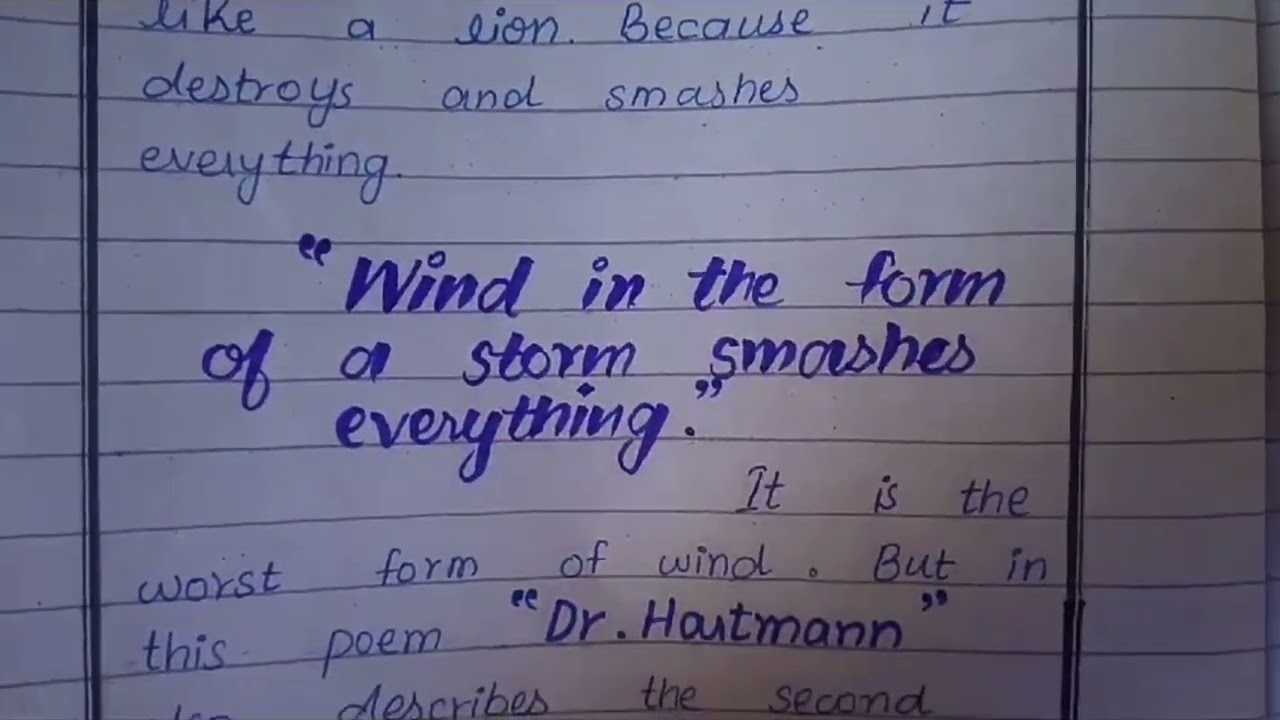 like a lion. Because it
destroys and smashes
everything.
"Wind in the form
of a storm smashes
everything."
It is the
worst form of wind. But in
this poem "Dr. Hautmann"
describes the second